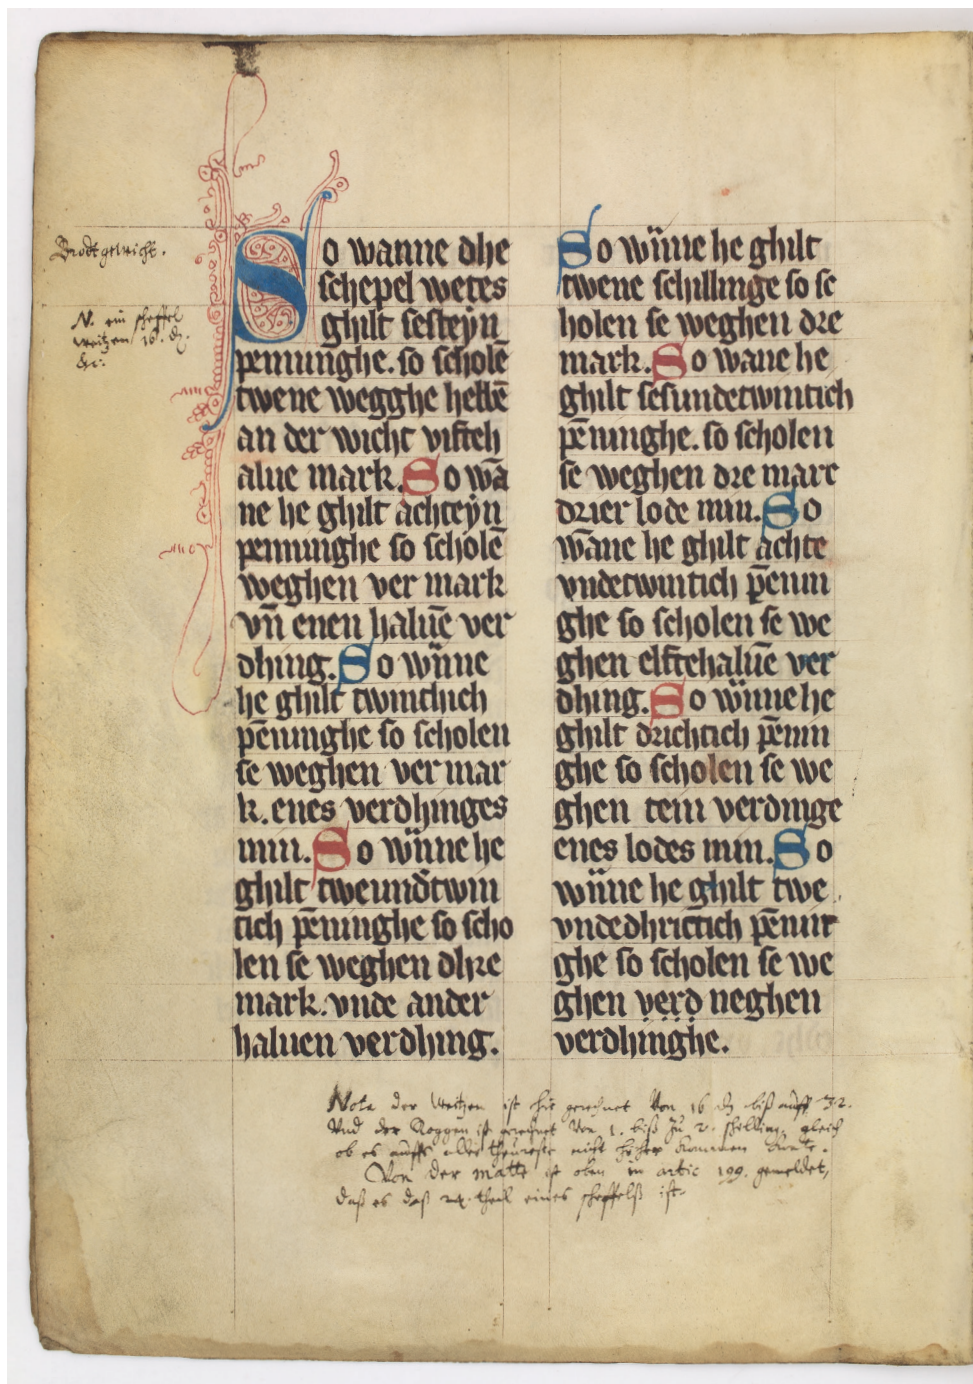 Brodt gewicht.
N. ein scheffel
weitzen 16. d.
etc.
So wanne dhe
schepel wetes
ghilt festeyn
penninghe. so scholē
twene wegghe hebbē
an der wicht vifteh
alue mark. So wā
ne he ghilt achteyn
penninghe so scholē
weghen ver mark
vn̄ enen haluē ver
dhing. So wīne
he ghilt twintich
pēninghe so scholen
se weghen ver mar
k. enes verdhinges
min. So wīne he
ghilt tweundtwin
tich pēninghe so scho
len se weghen dhre
mark. vnde ander
haluen verdhing.
So wīne he ghilt
twene schillinge so se
holen se weghen dre
mark. So wane he
ghilt sesundetwintich
pēninghe. so scholen
se weghen dre marc
drier lode min. So
wāne he ghilt achte
vndetwintich pēnin
ghe so scholen se we
ghen elftehaluē ver
dhing. So wīne he
ghilt drichtich pēnin
ghe so scholen se we
ghen tein verdinge
enes lodes min. So
wīne he ghilt twe
vndedhrittich pēnin
ghe so scholen se we
ghen verd neghen
verdhinghe.
Nota der Weitzen ist hie gerechnet Von 16 d. biß auff 32.
Vnd der Roggen ist gerechnet Von 1. biß zu 2. schelling. gleich
ob es auffs aller theureste nicht höher kommen konte.
Von der matte ist oben in artic 199. gemeldet,
daß es daß 24. theil eines scheffelß ist.